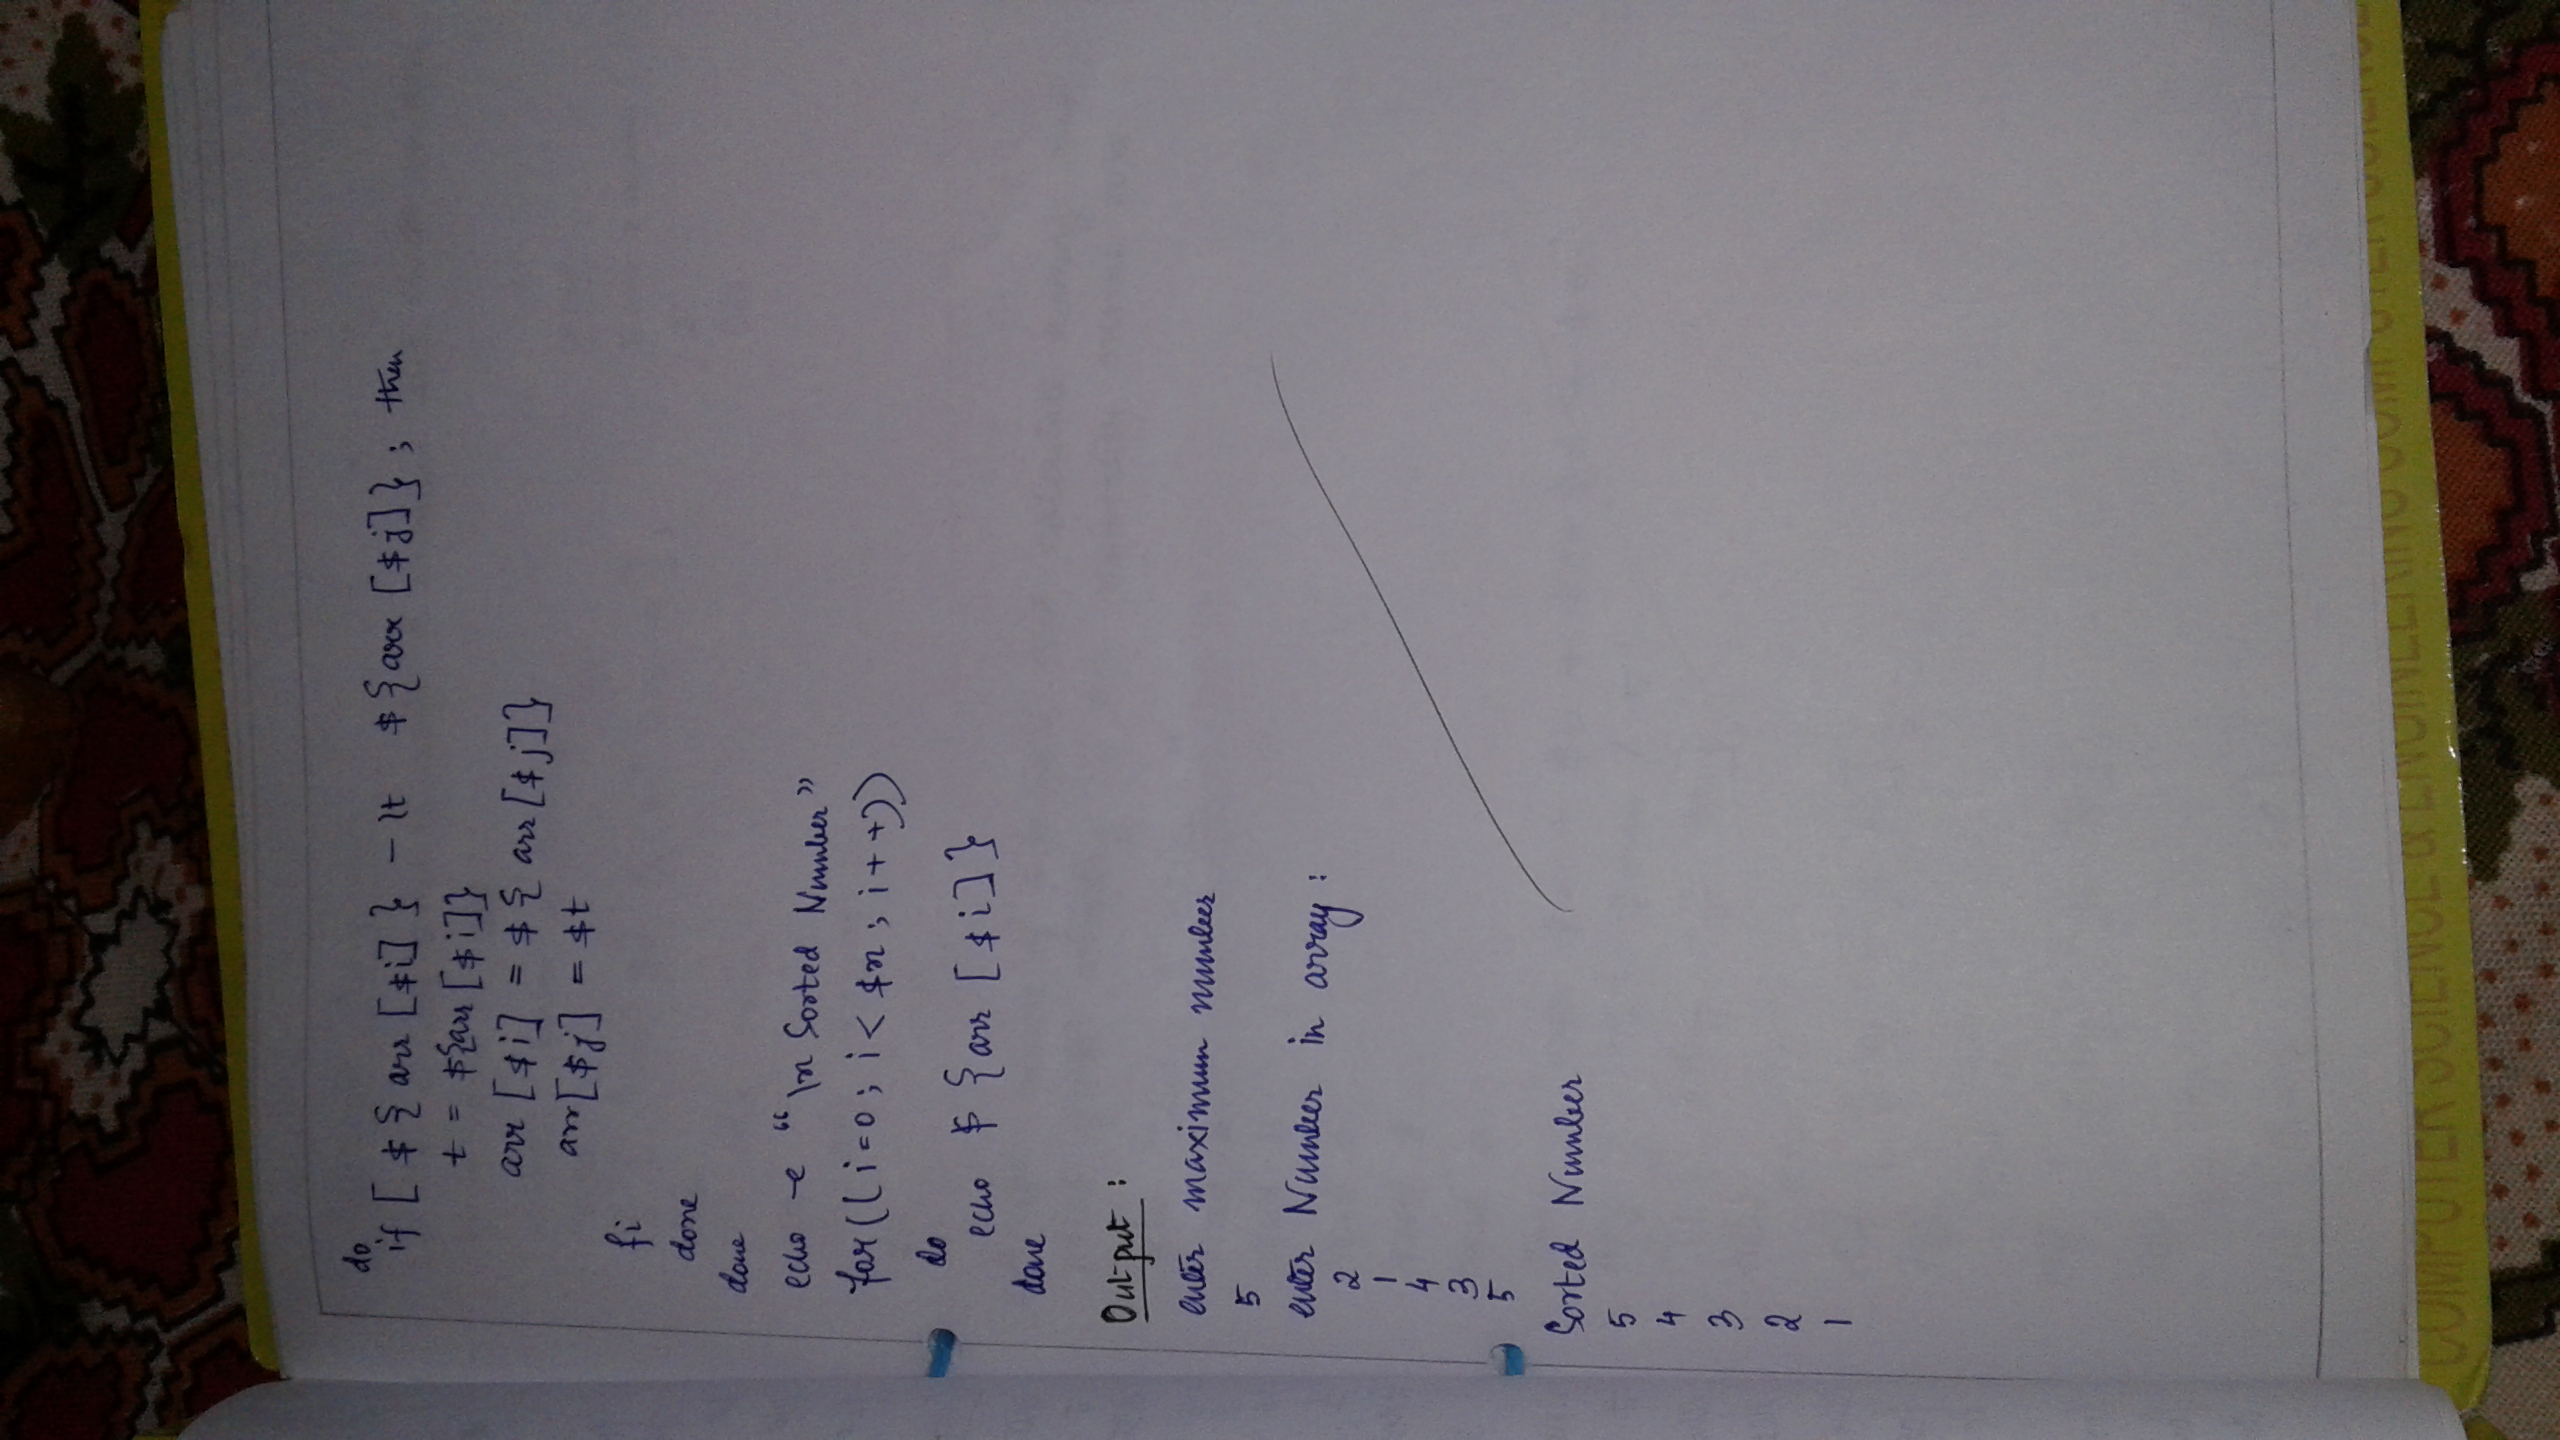 do
if [ ${arr[$i]} -lt ${arr[$j]}; then
t = ${arr[$i]}
arr[$i] = ${arr[$j]}
arr[$j] = $t
fi
done
done
echo -e "\n Sorted Number"
for((i=0; i<$n; i++))
do
echo ${arr[$i]}
done
Output :
enter maximum number
5
enter Number in array :
2
1
4
3
5
Sorted Number
5
4
3
2
1
COMPUTER SCIENCE & ENGINEERING COMPUTER SCIENCE